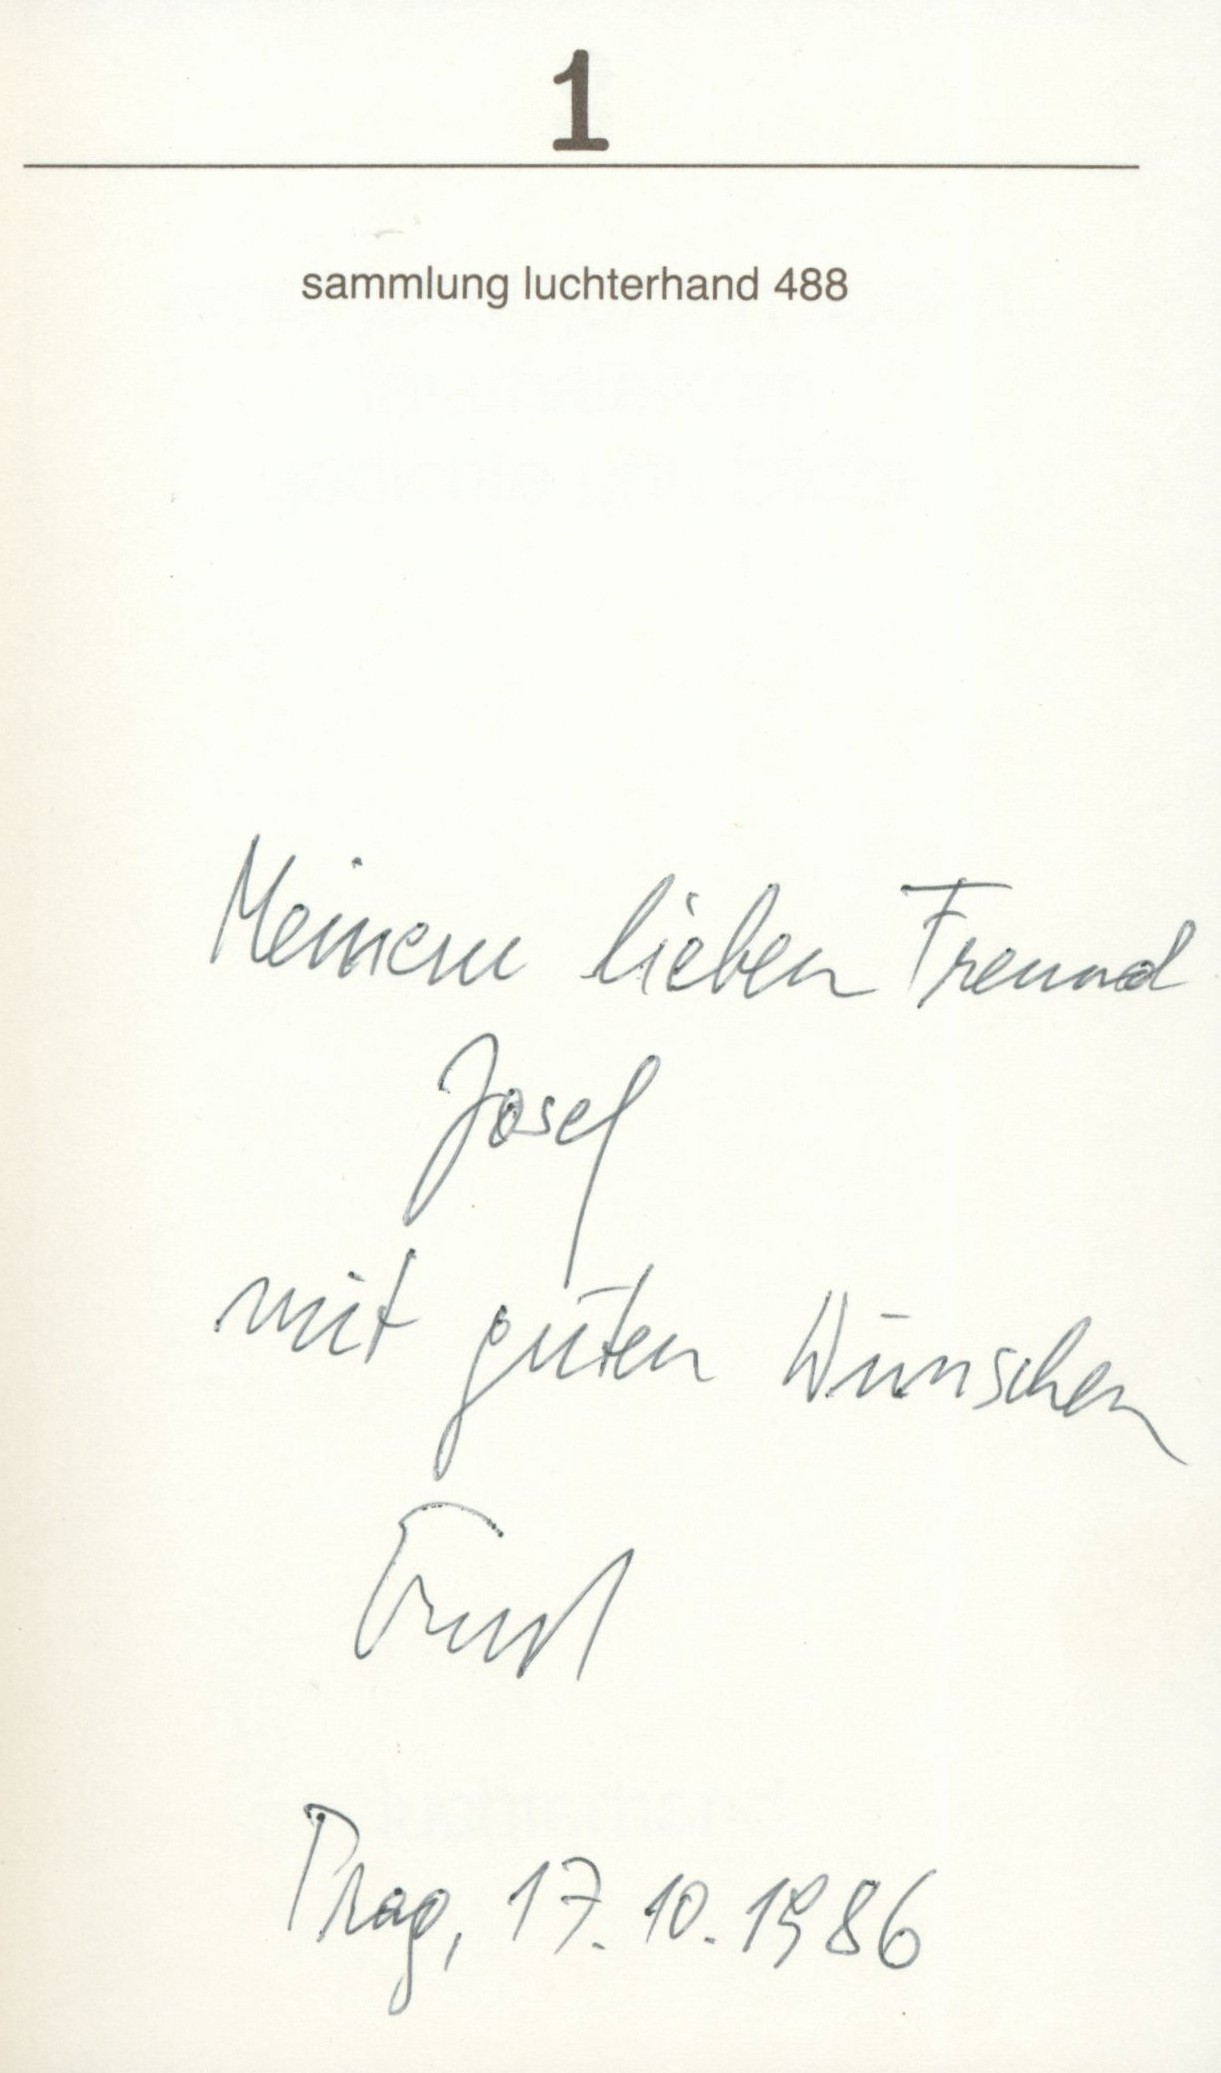 1
sammlung luchterhand 488
Meinem lieben Freund
Josef
mit guten Wünschen
Ernst
Prag, 17.10.1986